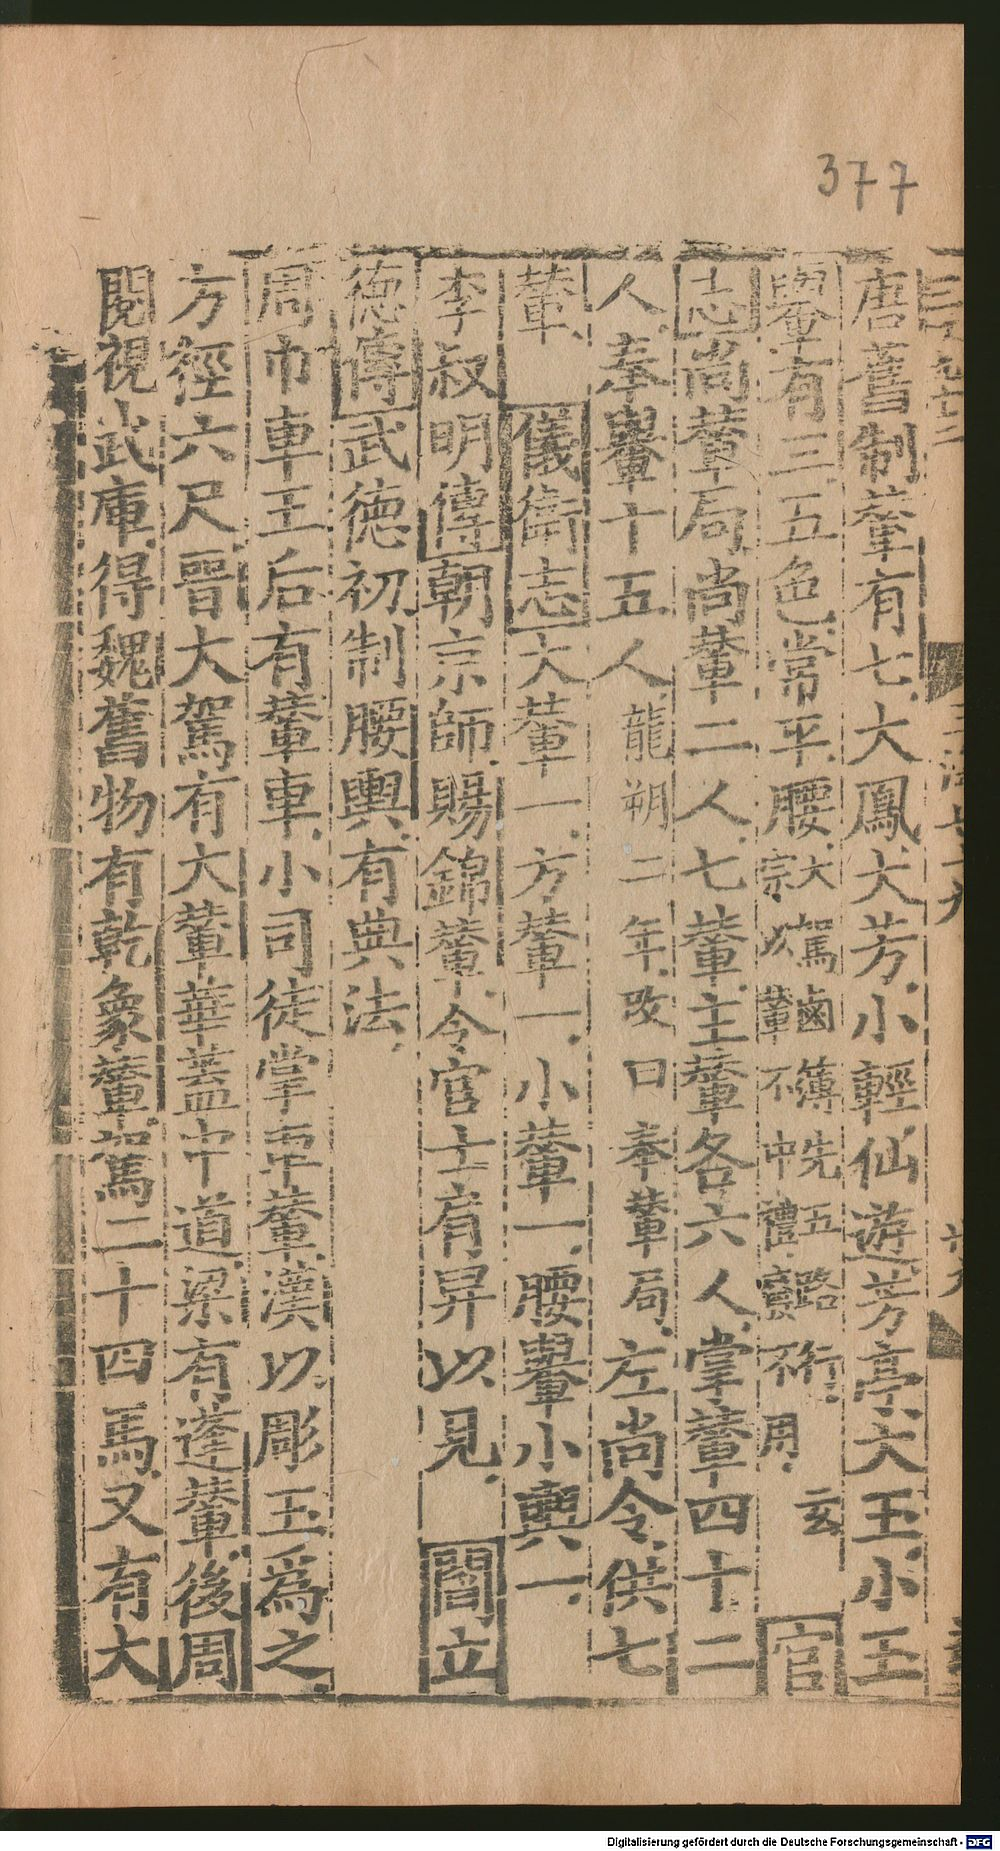 377
唐舊制輦有七大鳳大芳小輕仙遊芳亭大玉小玉
轝有三五色常平腰大駕鹵簿先五路玄
宗以輦不中禮廢不用 官
志尚輦局尚輦二人七輦主輦各六人掌輦四十二
人奉轝十五人龍朔二年改曰奉輦局左尚令供七
輦 儀衛志大輦一方輦一小輦一腰轝小輿一
李叔明傳朝京師賜錦輦令宦士肩舁以見 閻立
德傳武德初制腰輿有典法
周巾車王后有輦車小司徒掌葷輦漢以彫玉爲之
方徑六尺晉大駕有大輦華蓋中道梁有蓬輦後周
閱視武庫得魏舊物有乾象輦駕二十四馬又有大
Digitalisierung gefördert durch die Deutsche Forschungsgemeinschaft - DFG